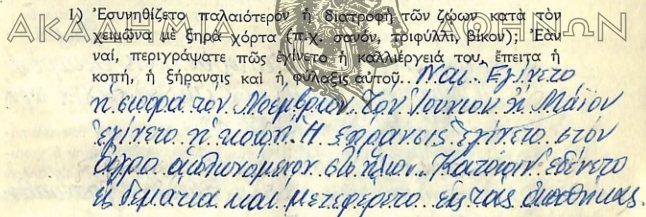 1) Ἐσυνηθίζετο παλαιότερον ἡ διατροφὴ τῶν ζώων κατὰ τὸν
χειμῶνα μὲ ξηρὰ χόρτα (π.χ. σανόν, τριφύλλι, βίκον); Ἐὰν
ναί, περιγράψατε πῶς ἐγίνετο ἡ καλλιέργειά του, ἔπειτα ἡ
κοπή, ἡ ξήρανσις καὶ ἡ φύλαξις αὐτοῦ. Ναι. Ἐγίνετο
ἡ σπορά τὸν Νοέμβριον. Τὸν Ἰούνιον ἢ Μάϊον
ἐγίνετο ἡ κοπή. Ἡ ξήρανσις ἐγίνετο στὸν
ἀγρό ἁπλωνόμενον στὸν ἥλιον. Κατόπιν ἐδένετο
εἰς δεμάτια καὶ μετεφέρετο εἰς τὰς ἀποθήκας.
ΑΚΑΔΗΜΙΑ ΑΘΗΝΩΝ